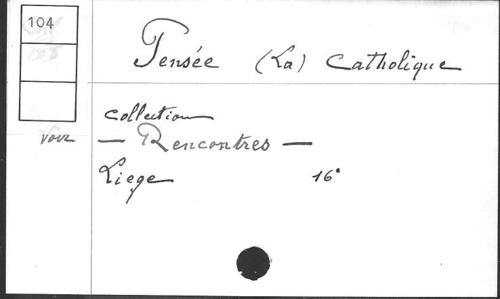 104
Pensée (La) Catholique
Collection
— Rencontres —
Voir
Liege 16°